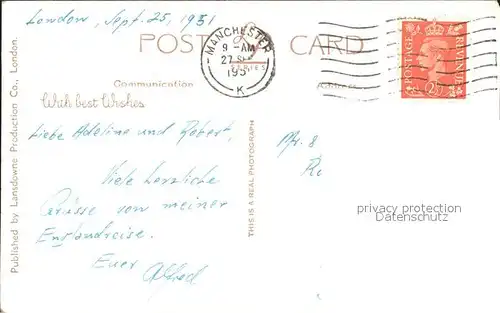 London, Sept. 25, 1951
POST CARD
MANCHESTER
9 - AM
27 SE
195
K
POSTAGE
REVENUE
2½
Communication
Address
With best Wishes
Liebe Adeline und Robert,
Viele herzliche
Grüsse von meiner
Englandreise.
Euer
Alfred
Published by Lansdowne Production Co., London.
THIS IS A REAL PHOTOGRAPH
Mr. &
privacy protection
Datenschutz